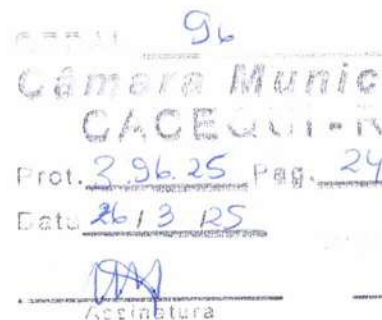 GERAL 96
Câmara Munic
CACEQUI - R
Prot. 3.96.25 Pag. 24
Data 26 / 3 / 25
Assinatura